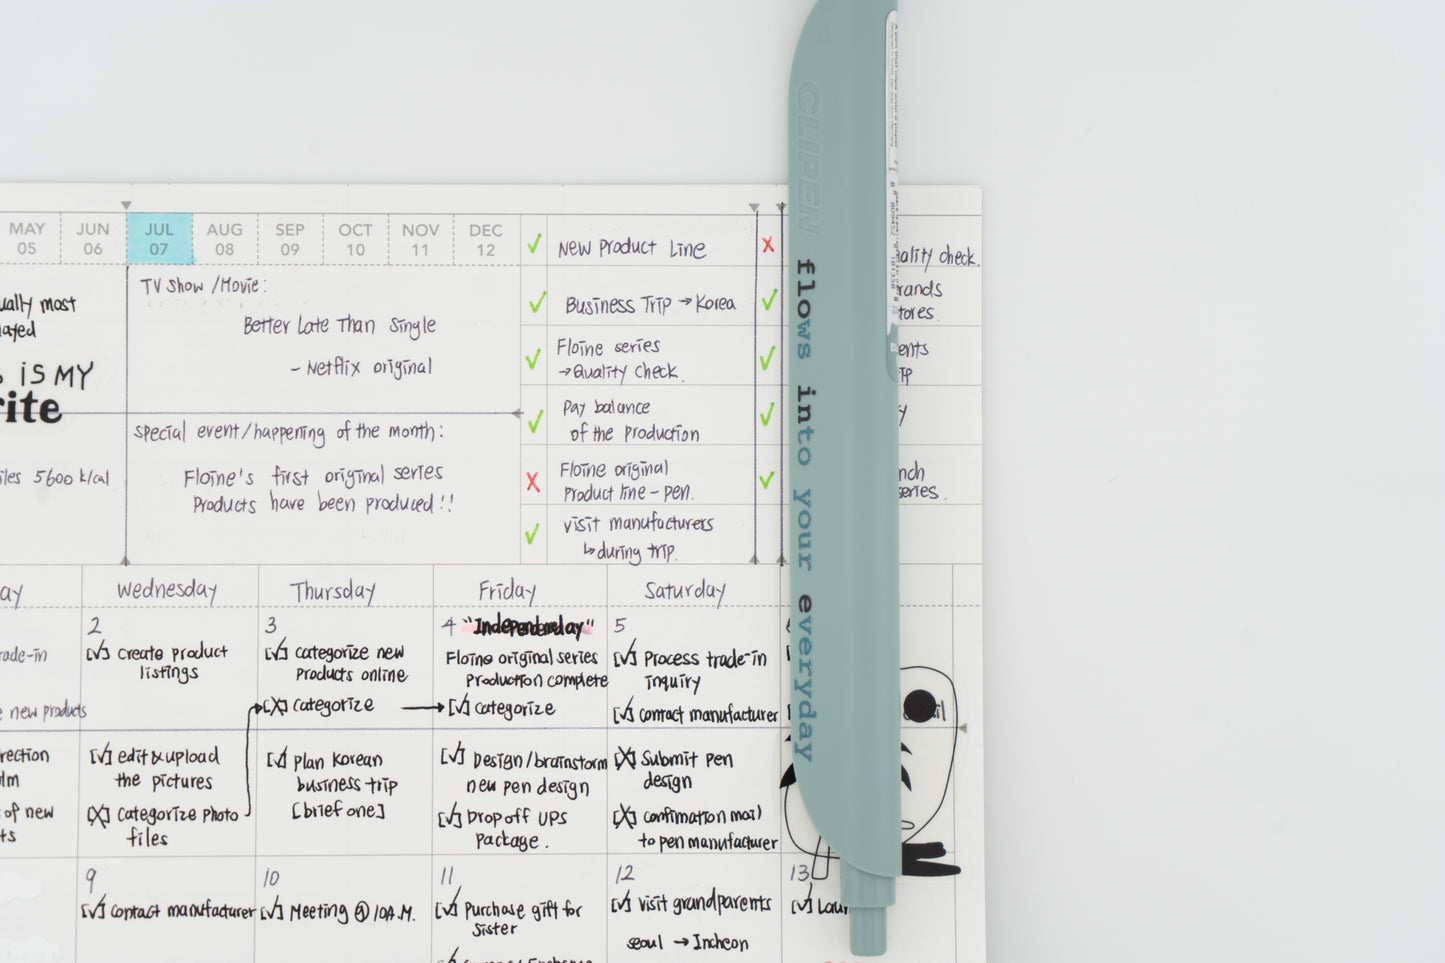 MAY JUN JUL AUG SEP OCT NOV DEC
05 06 07 08 09 10 11 12
ually most
ayed
IS MY
rite
iles 5600 k/cal
TV Show / Movie:
Better Late Than Single
- Netflix original
Special event/happening of the month:
Floine's first original series
Products have been produced!!
✓ New Product Line
✓ Business Trip → Korea
✓ Floine series
→ Quality check.
✓ Pay balance
of the production
X Floine original
Product line - pen.
✓ Visit manufacturers
↳ during trip.
X
✓
✓
✓
✓
ality check.
rands
tores.
ents
ip
y
nch
series.
CLIPEN
flows into your everyday
ay Wednesday Thursday Friday Saturday
rade-in
e new products
rection
lm
of new
ts
2
[✓] Create product
listings
[✓] edit & upload
the pictures
[X] Categorize photo
files
3
[✓] Categorize new
Products online
[X] Categorize
[✓] Plan Korean
business trip
[brief one]
4 "Independenday"
Floine original series
Production complete
[✓] Categorize
[✓] Design/brainstorm
new pen design
[✓] Drop off UPS
Package.
5
[✓] Process trade-in
inquiry
[✓] Contact manufacturer
[X] Submit pen
design
[X] Confimation mail
to pen manufacturer
6
9
[✓] Contact manufacturer
10
[✓] Meeting @ 10A.M.
11
[✓] Purchase gift for
Sister
12
[✓] Visit grandparents
Seoul → Incheon
13
[✓] Lau